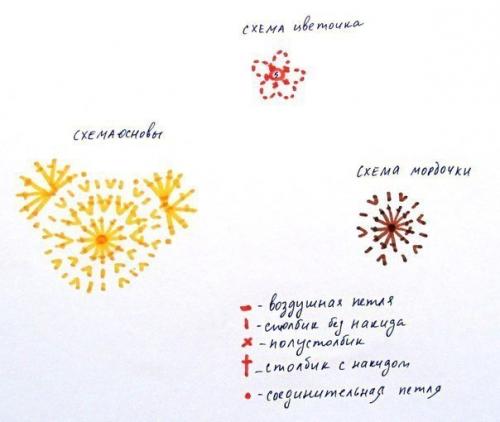 схема цветочка
схема основы
схема мордочки
- воздушная петля
- столбик без накида
- полустолбик
- столбик с накидом
- соединительная петля